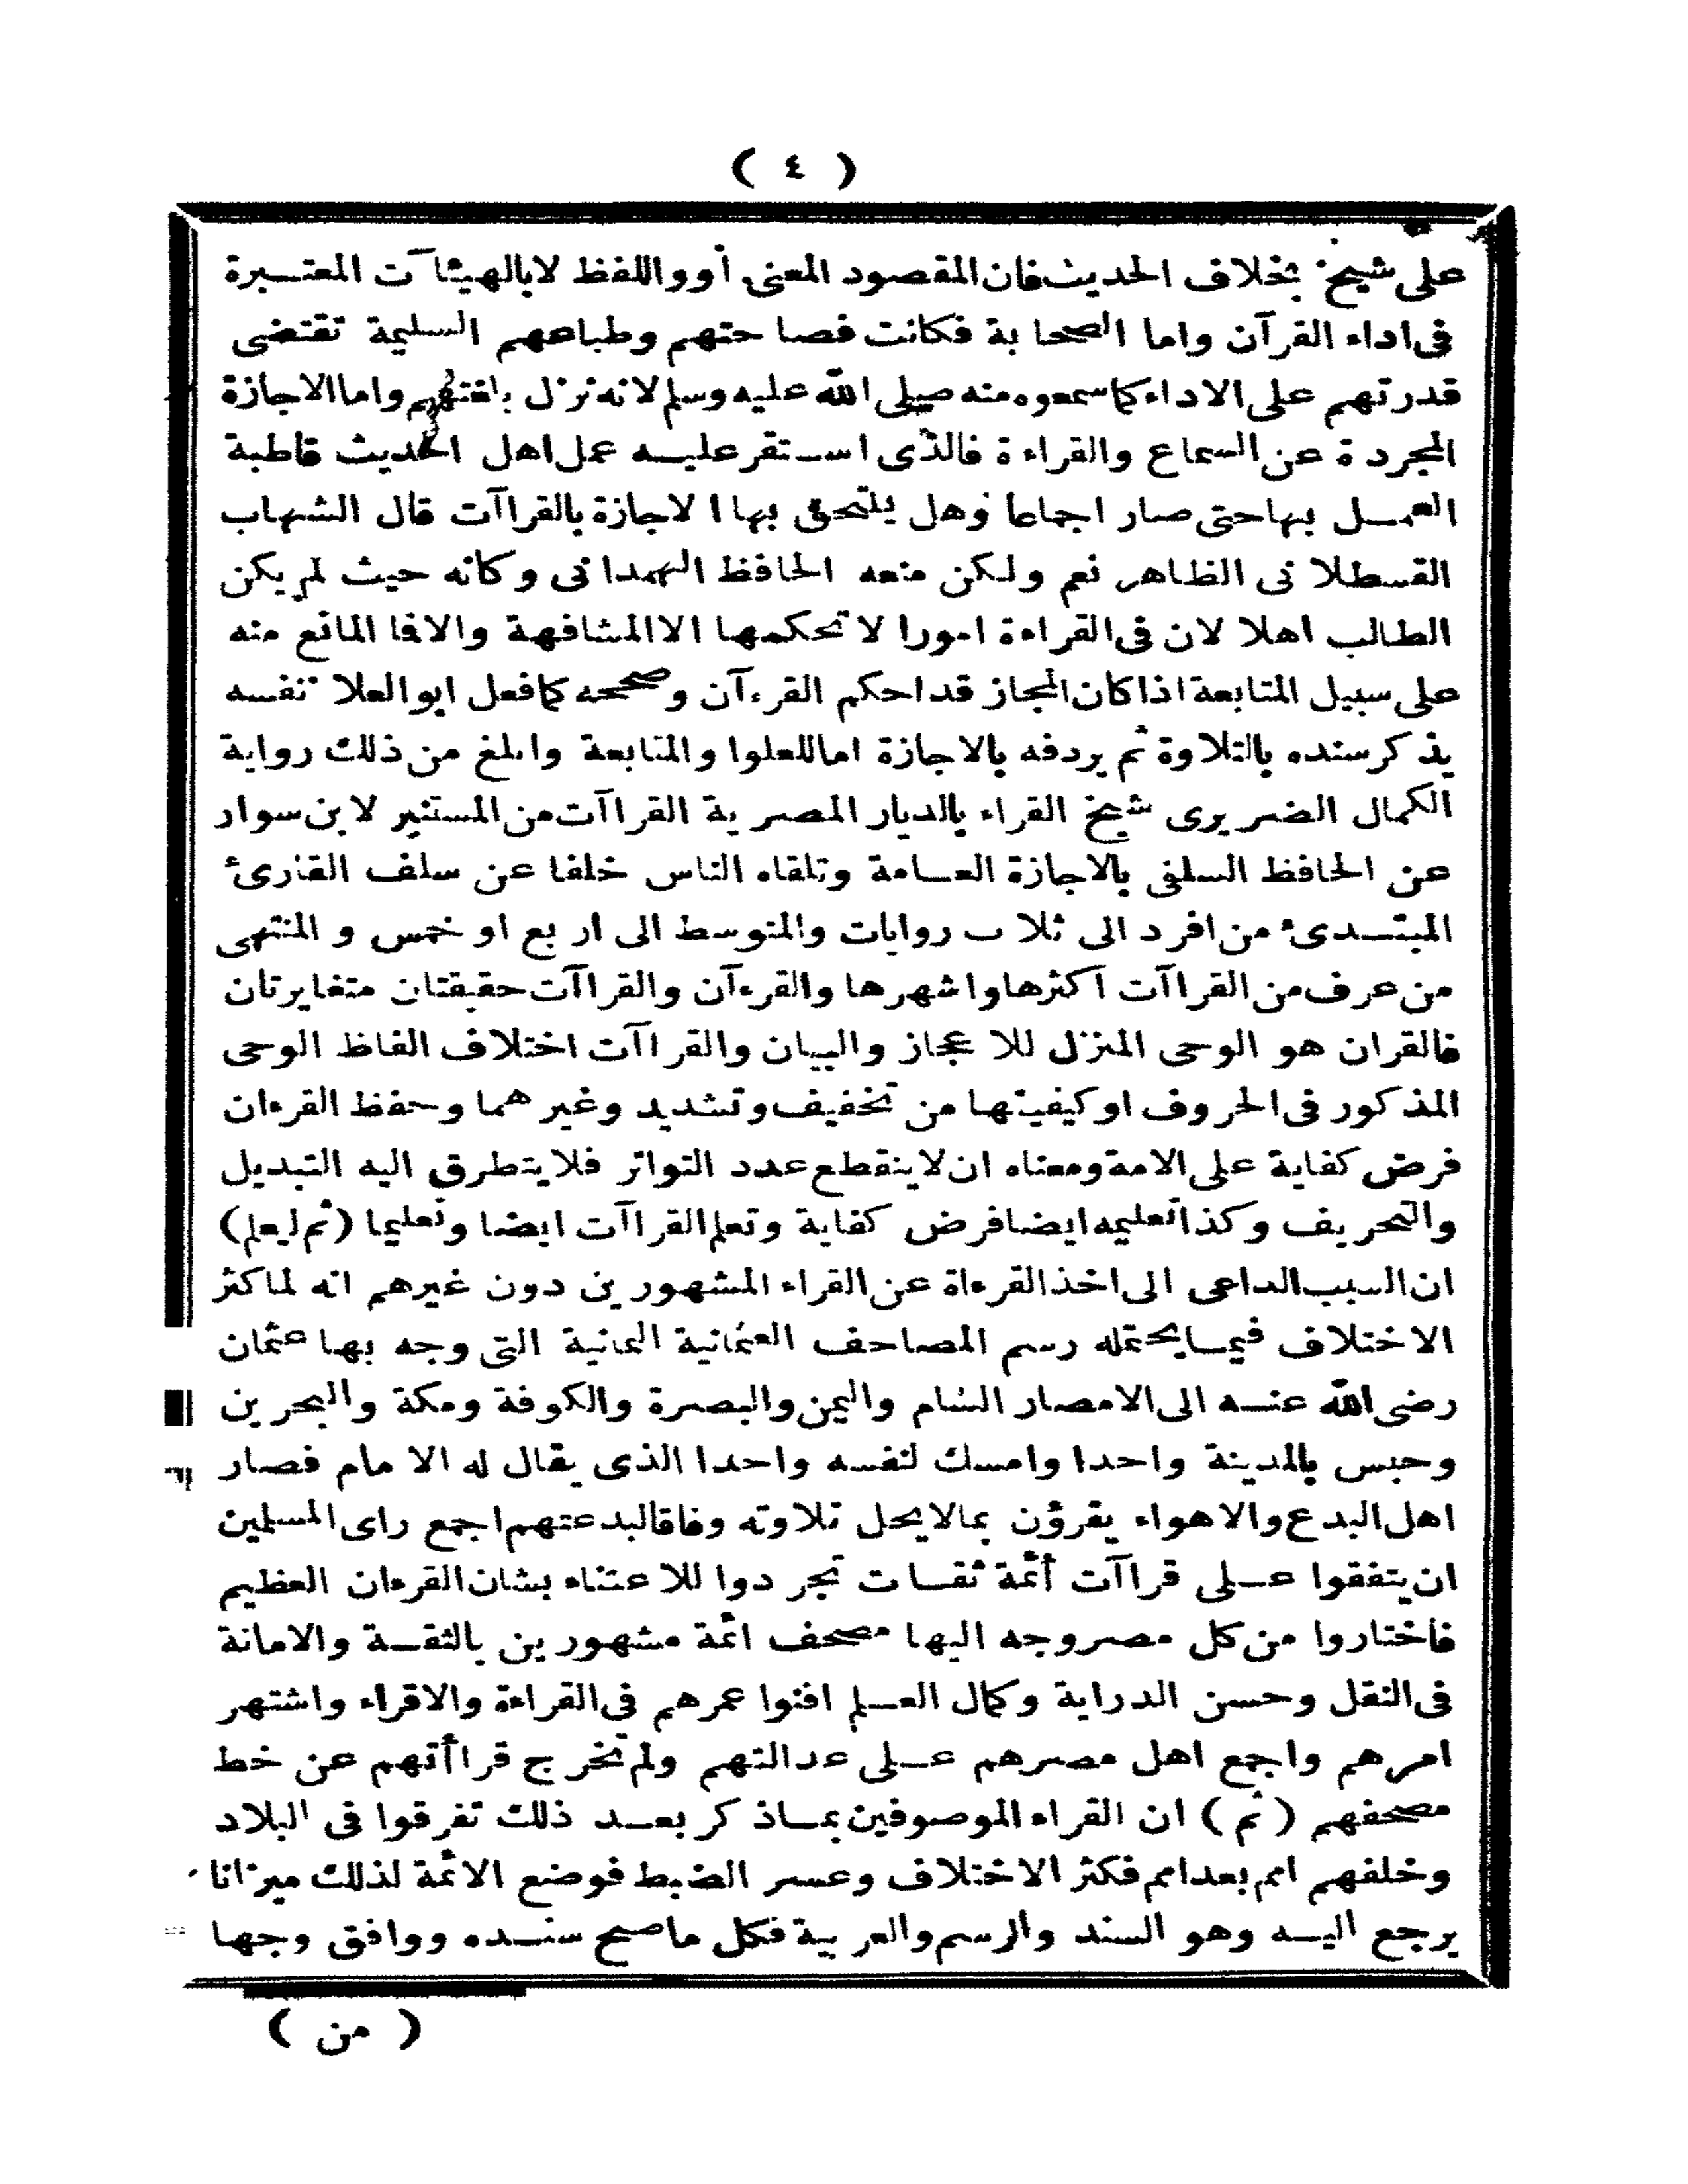 ( ٤ )
على شيخ بخلاف الحديث فان المقصود المعنى أوواللفظ لابالهيئات المعتبرة
فى اداء القرآن واما الصحابة فكانت فصاحتهم وطباعهم السليمة تقتضى
قدرتهم على الاداء كما سمعوه منه صلى الله عليه وسلم لانه نزل بلغتهم واما الاجازة
المجردة عن السماع والقراءة فالذى استقر عليه عمل اهل الحديث قاطبة
العمل بها حتى صار اجماعا وهل يلتحق بها الاجازة بالقراآت قال الشهاب
القسطلانى الظاهر نعم ولكن منعه الحافظ الهمدانى وكانه حيث لم يكن
الطالب اهلا لان فى القراءة امورا لا تحكمها الا المشافهة والا فا المانع منه
على سبيل المتابعة اذا كان المجاز قد احكم القرءآن وصححه كما فعل ابو العلا نفسه
يذكر سنده بالتلاوة ثم يردفه بالاجازة اما للعلوا والمتابعة وابلغ من ذلك رواية
الكمال الضريرى شيخ القراء بالديار المصرية القراآت من المستنير لابن سوار
عن الحافظ السلفى بالاجازة العامة وتلقاه الناس خلفا عن سلف القارئ
المبتدئ من افرد الى ثلاب روايات والمتوسط الى اربع او خمس و المنتهى
من عرف من القراآت اكثرها واشهرها والقرءآن والقراآت حقيقتان متغايرتان
فالقران هو الوحى المنزل للاعجاز والبيان والقراآت اختلاف الفاظ الوحى
المذكور فى الحروف اوكيفيتها من تخفيف وتشديد وغيرهما وحفظ القرءان
فرض كفاية على الامة ومعناه ان لا ينقطع عدد التواتر فلا يتطرق اليه التبديل
والتحريف وكذا تعليمه ايضا فرض كفاية وتعلم القراآت ايضا وتعليما (ثم ليعلم)
ان السبب الداعى الى اخذ القرءاة عن القراء المشهورين دون غيرهم انه لما كثر
الاختلاف فيما يحتمله رسم المصاحف العثمانية الثمانية التى وجه بها عثمان
رضى الله عنه الى الامصار الشام واليمن والبصرة والكوفة ومكة والبحرين
وحبس بالمدينة واحدا وامسك لنفسه واحدا الذى يقال له الامام فصار
اهل البدع والاهواء يقرؤن بمالايحل تلاوته وفاقا لبدعتهم اجمع راى المسلمين
ان يتفقوا على قراآت أئمة ثقات تجردوا للاعتناء بشان القرءان العظيم
فاختاروا من كل مصر وجه اليها مصحف ائمة مشهورين بالثقة والامانة
فى النقل وحسن الدراية وكمال العلم افنوا عمرهم فى القراءة والاقراء واشتهر
امرهم واجمع اهل مصرهم على عدالتهم ولم تخرج قراأتهم عن خط
مصحفهم (ثم) ان القراء الموصوفين بما ذكر بعد ذلك تفرقوا فى البلاد
وخلفهم امم بعد امم فكثر الاختلاف وعسر الضبط فوضع الائمة لذلك ميزانا
يرجع اليه وهو السند والرسم والعربية فكل ما صح سنده ووافق وجها
( من )